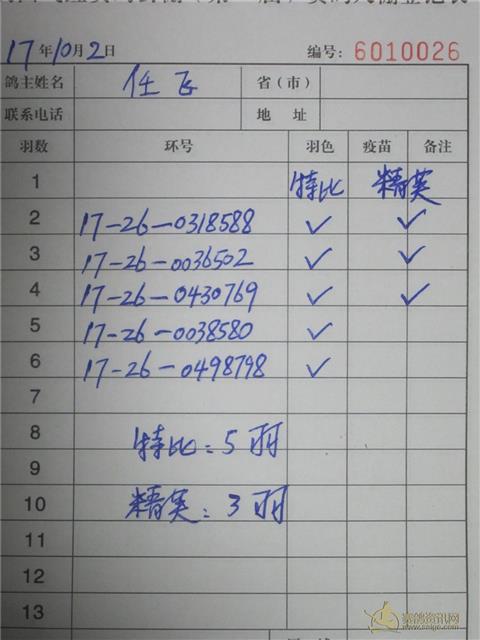 17年10月2日 编号: 6010026
鸽主姓名 任飞 省(市)
联系电话 地址
羽数 环号 羽色 疫苗 备注
1 特比 精英
2 17-26-0318588 ✓ ✓
3 17-26-0036502 ✓ ✓
4 17-26-0430769 ✓ ✓
5 17-26-0038580 ✓
6 17-26-0498798 ✓
7
8 特比: 5羽
9
10 精英: 3羽
11
12
13
赛鸽资讯网